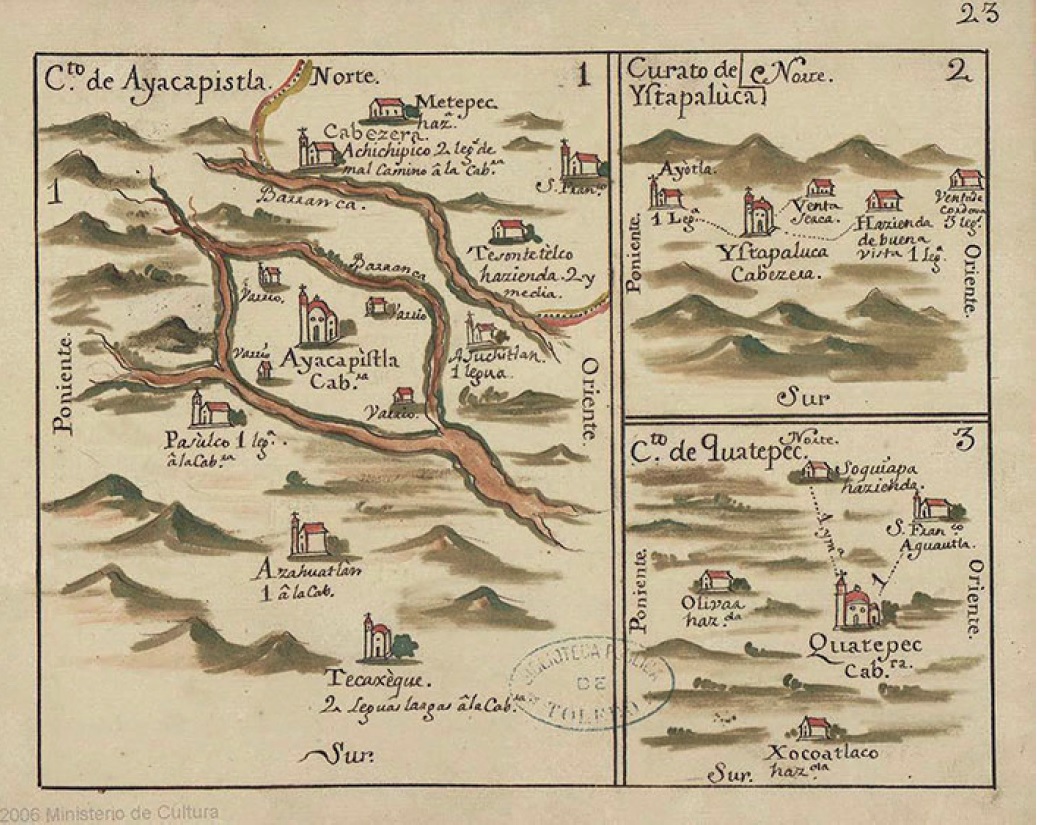 23
C.to de Ayacapistla. Norte. 1
Metepec
haz.a
Cabezera.
Achichipico 2 leg.s de
mal Camino â la Cab.ra
S. Fran.co
1
Barranca.
Tesontetelco
hazienda. 2 y
media.
Barranca
Varrio.
Varrio
Ayacapistla
Cab.ra
Varrio
Varrio.
1 legua.
Pasulco 1 leg.a.
â la Cab.ra
Poniente.
Oriente.
Azahuatlan
1 â la Cab.
Tecaxèque.
2 Leguas largas â la Cab.ra
Sur.
Curato de Norte. 2
Ystapalùca
Ayotla.
1 Leg.a
Venta
Seaca.
Hazienda
de buena
vista 1 leg.
Venta de
Cordova
3 leg.s
Ystapaluca
Cabezera.
Poniente.
Oriente.
Sur
C.to de Quatepec. Norte. 3
Soquiapa
hazienda.
S. Fran.co
Aguautla.
1 y m.a
1
Olivar
haz.da
Quatepec
Cab.ra.
Poniente.
Oriente.
Xocoatlaco
haz.da
Sur.
BIBLIOTECA PUBLICA
DE
TOLEDO
2006 Ministerio de Cultura